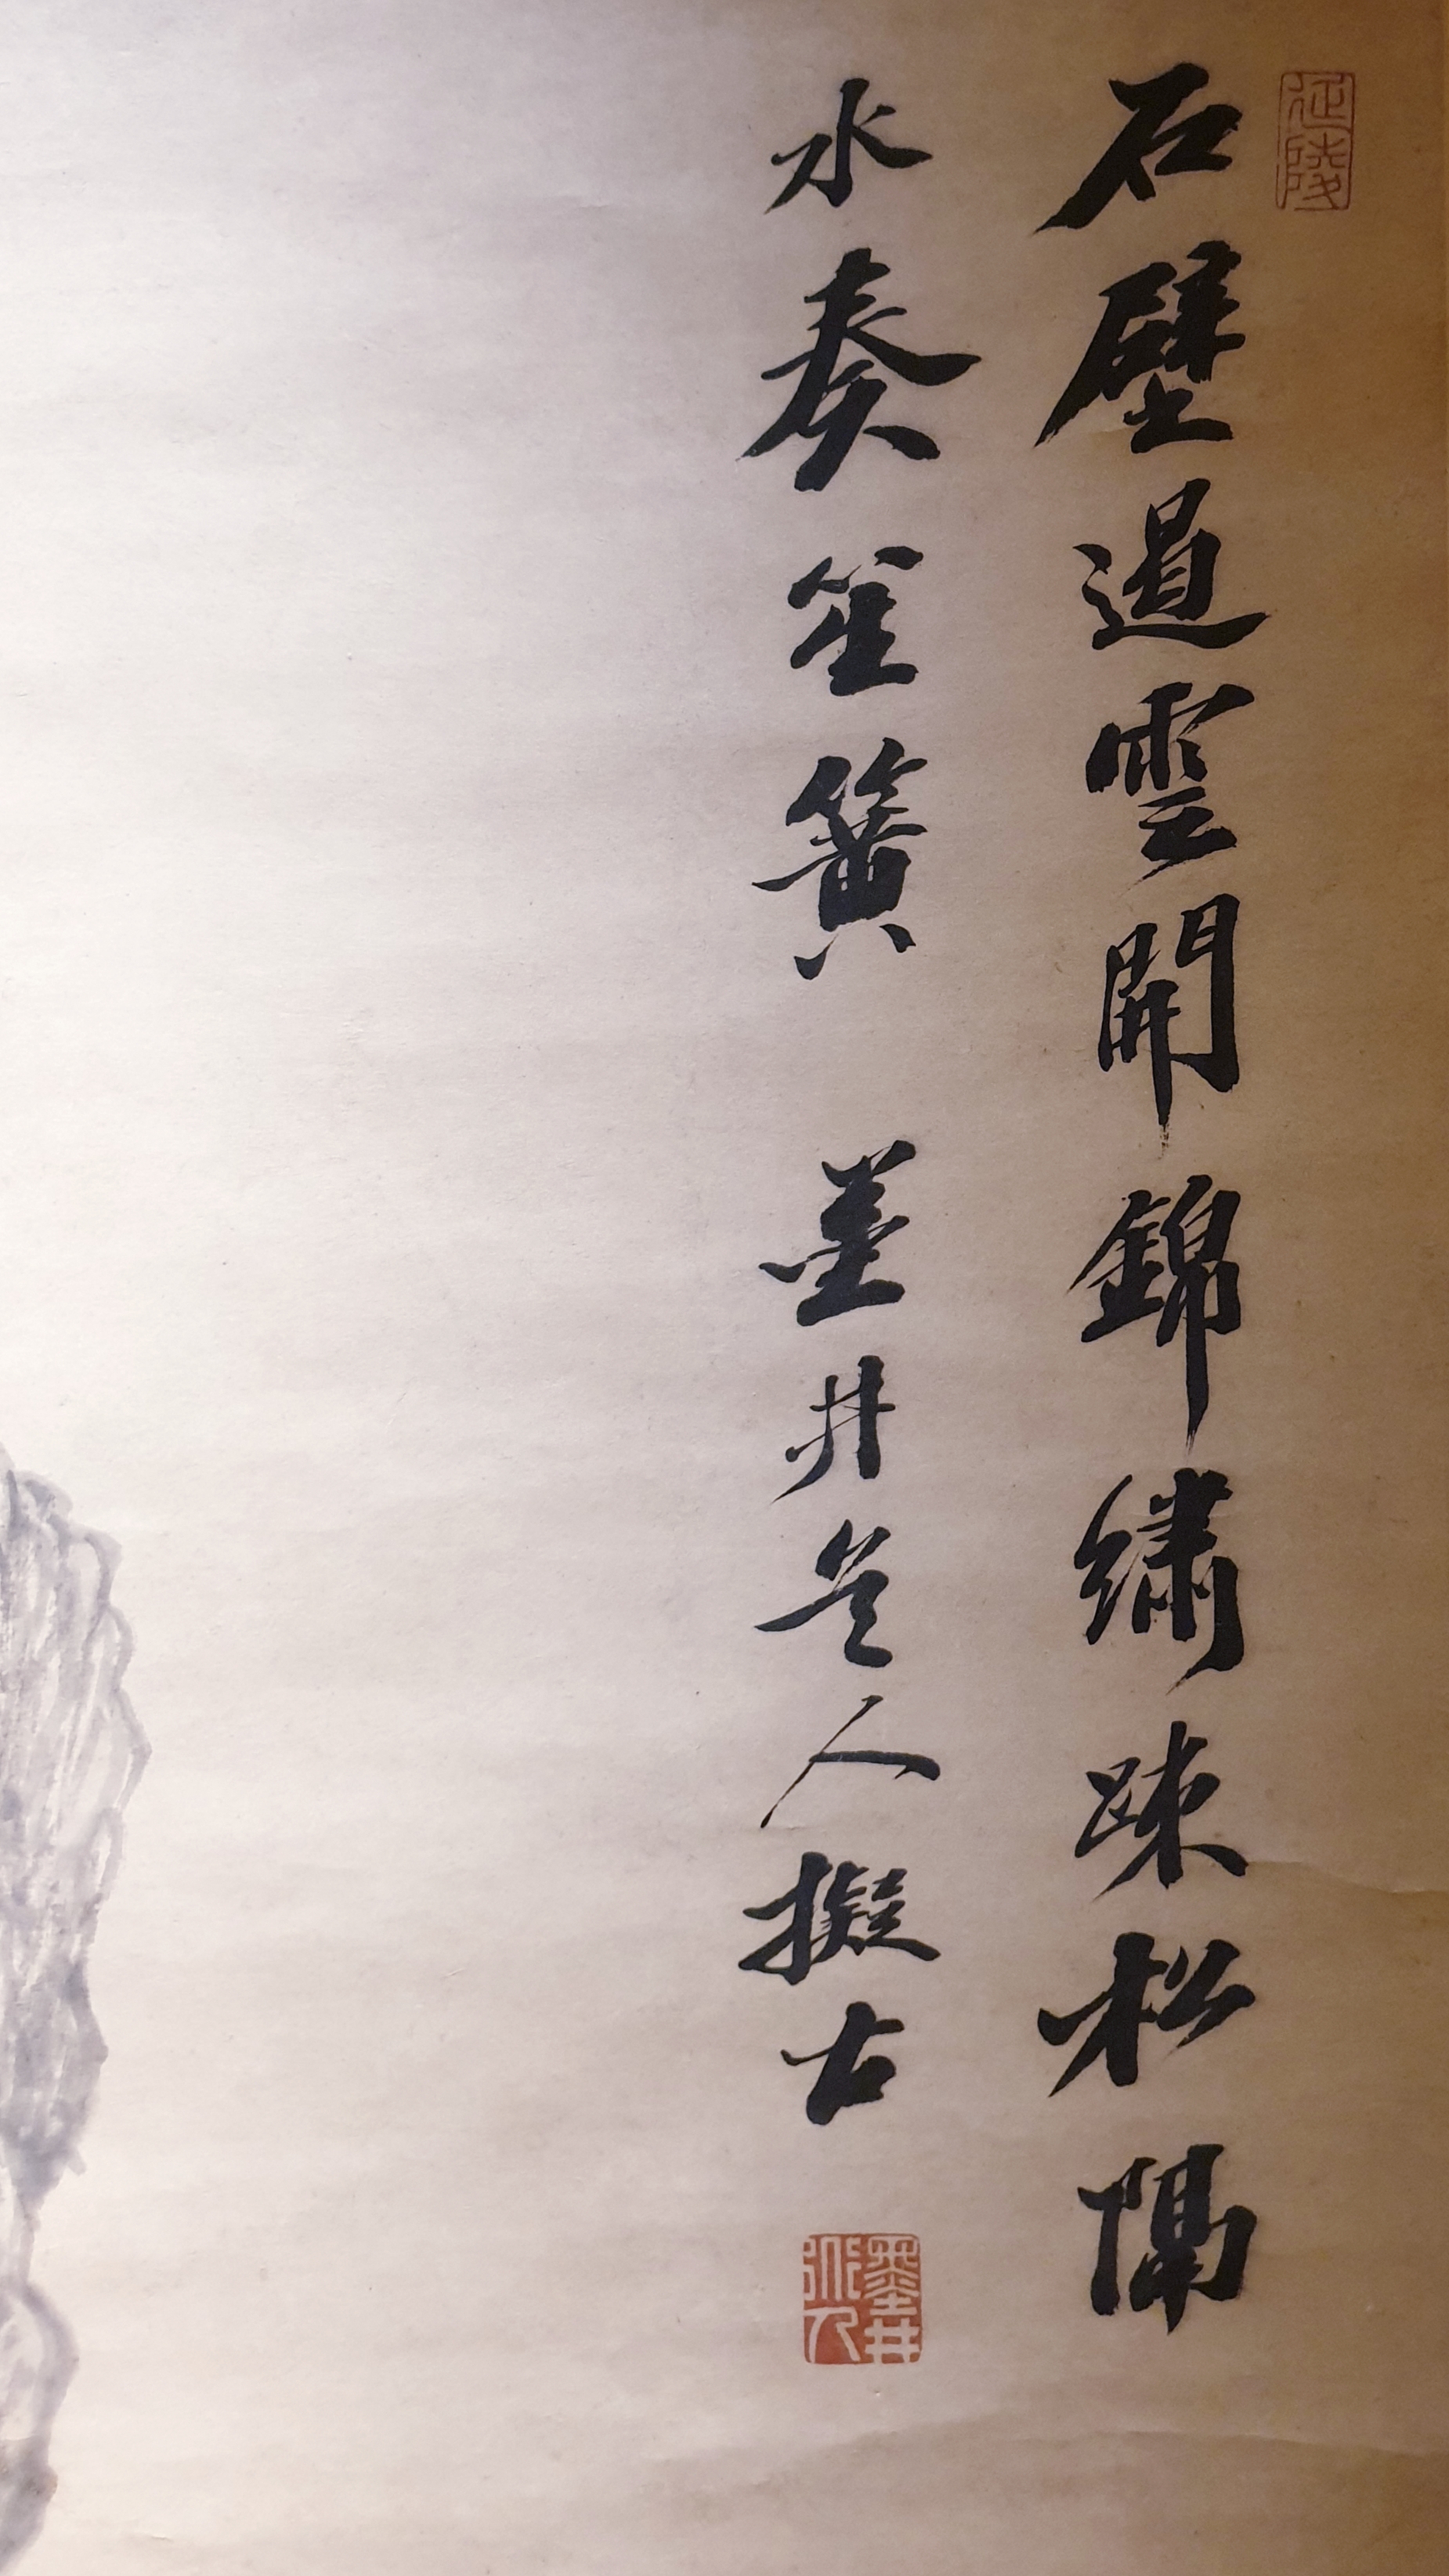 延陵
石壁過雲開錦繡踈松隔
水奏笙簧 墨井道人擬古
墨井道人